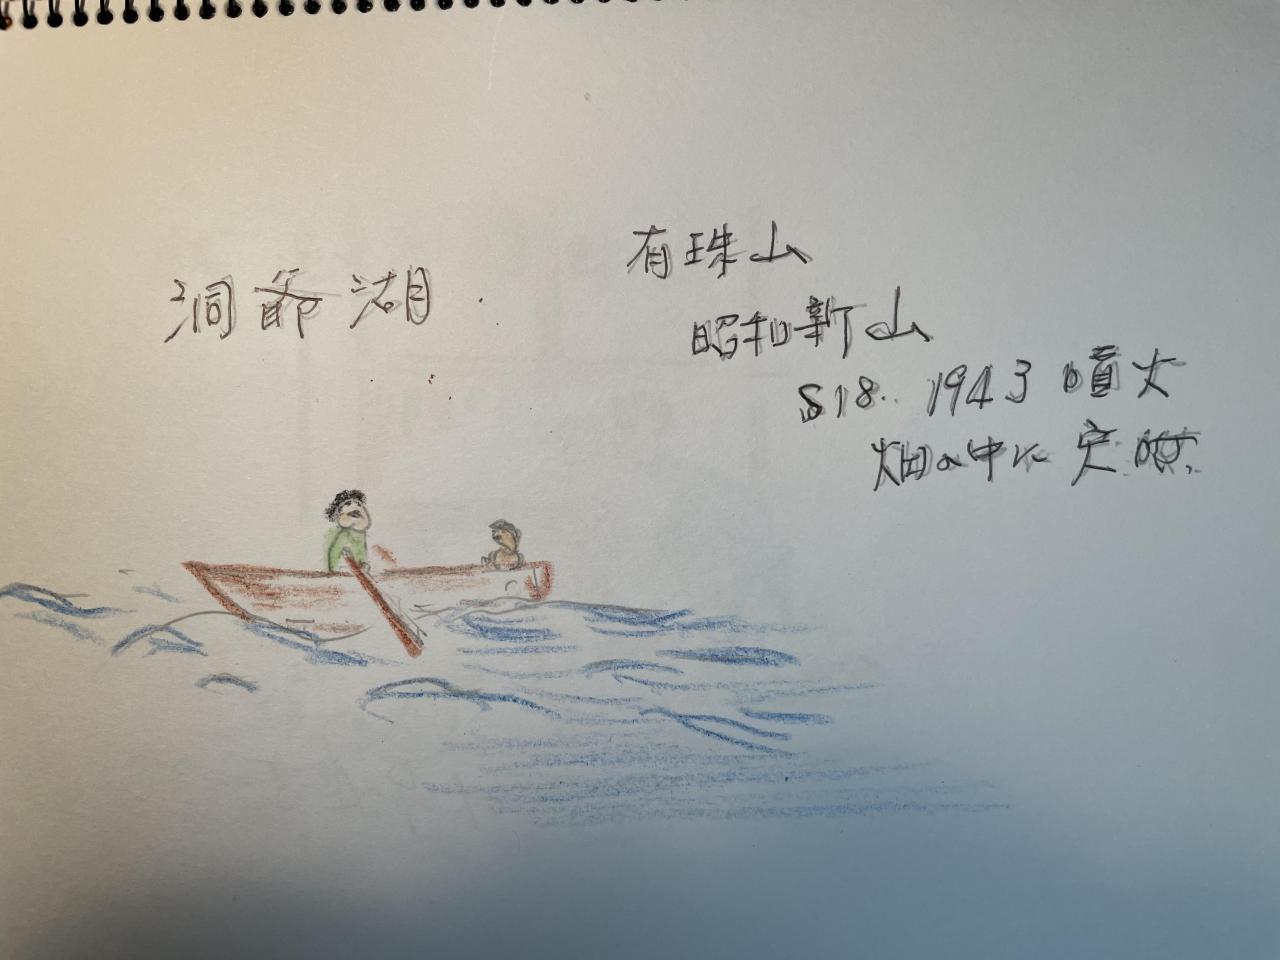 洞爺湖
有珠山
昭和新山
S18. 1943 噴火
畑の中に突